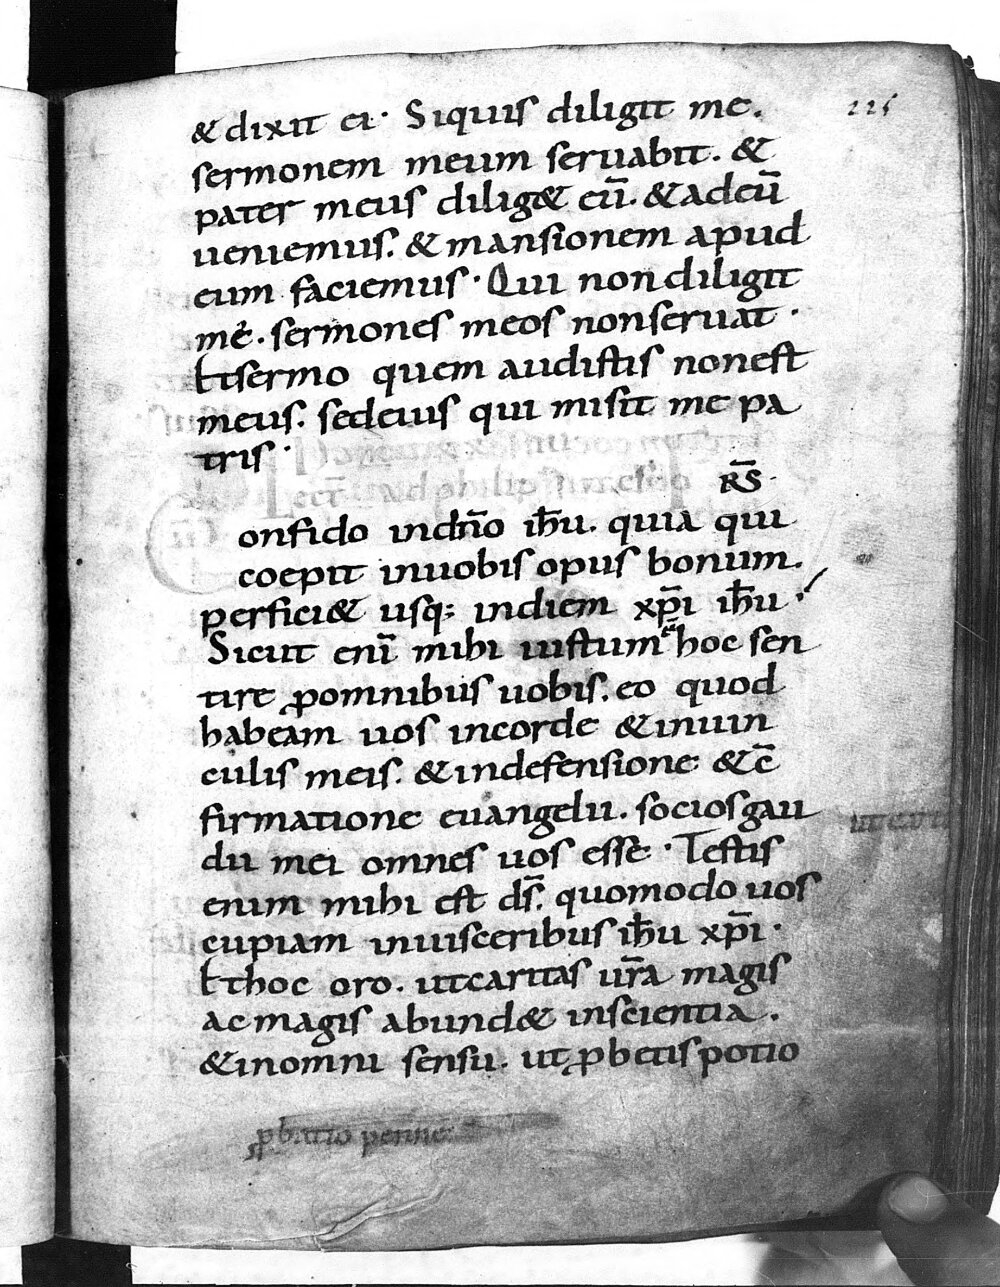 225
& dixit ei· Siquis diligit me.
sermonem meum seruabit. &
pater meus dilig& eū. & adeū
ueniemus. & mansionem apud
eum faciemus· Qui non diligit
me. sermones meos nonseruat·
Etsermo quem audistis nonest
meus. sedeius qui misit me pa
tris·
Lect ad philip
R̄S·
onfido indn̄o ih̄u. quia qui
coepit inuobis opus bonum.
perfici& usq; indiem xp̄i ih̄u·
Sicut enī mihi iustum ē hoc sen
tire ꝓomnibus uobis. eo quod
habeam uos incorde & inuin
culis meis. & indefensione & c̄
firmatione euangelii. sociosgau
dii mei omnes uos esse· Testis
enim mihi est ds̄. quomodo uos
cupiam inuisceribus ih̄u xp̄i·
Ethoc oro. utcaritas ur̄a magis
ac magis abund& inscientia.
& inomni sensu. ut ꝓbetis potio
ꝓbatio penne